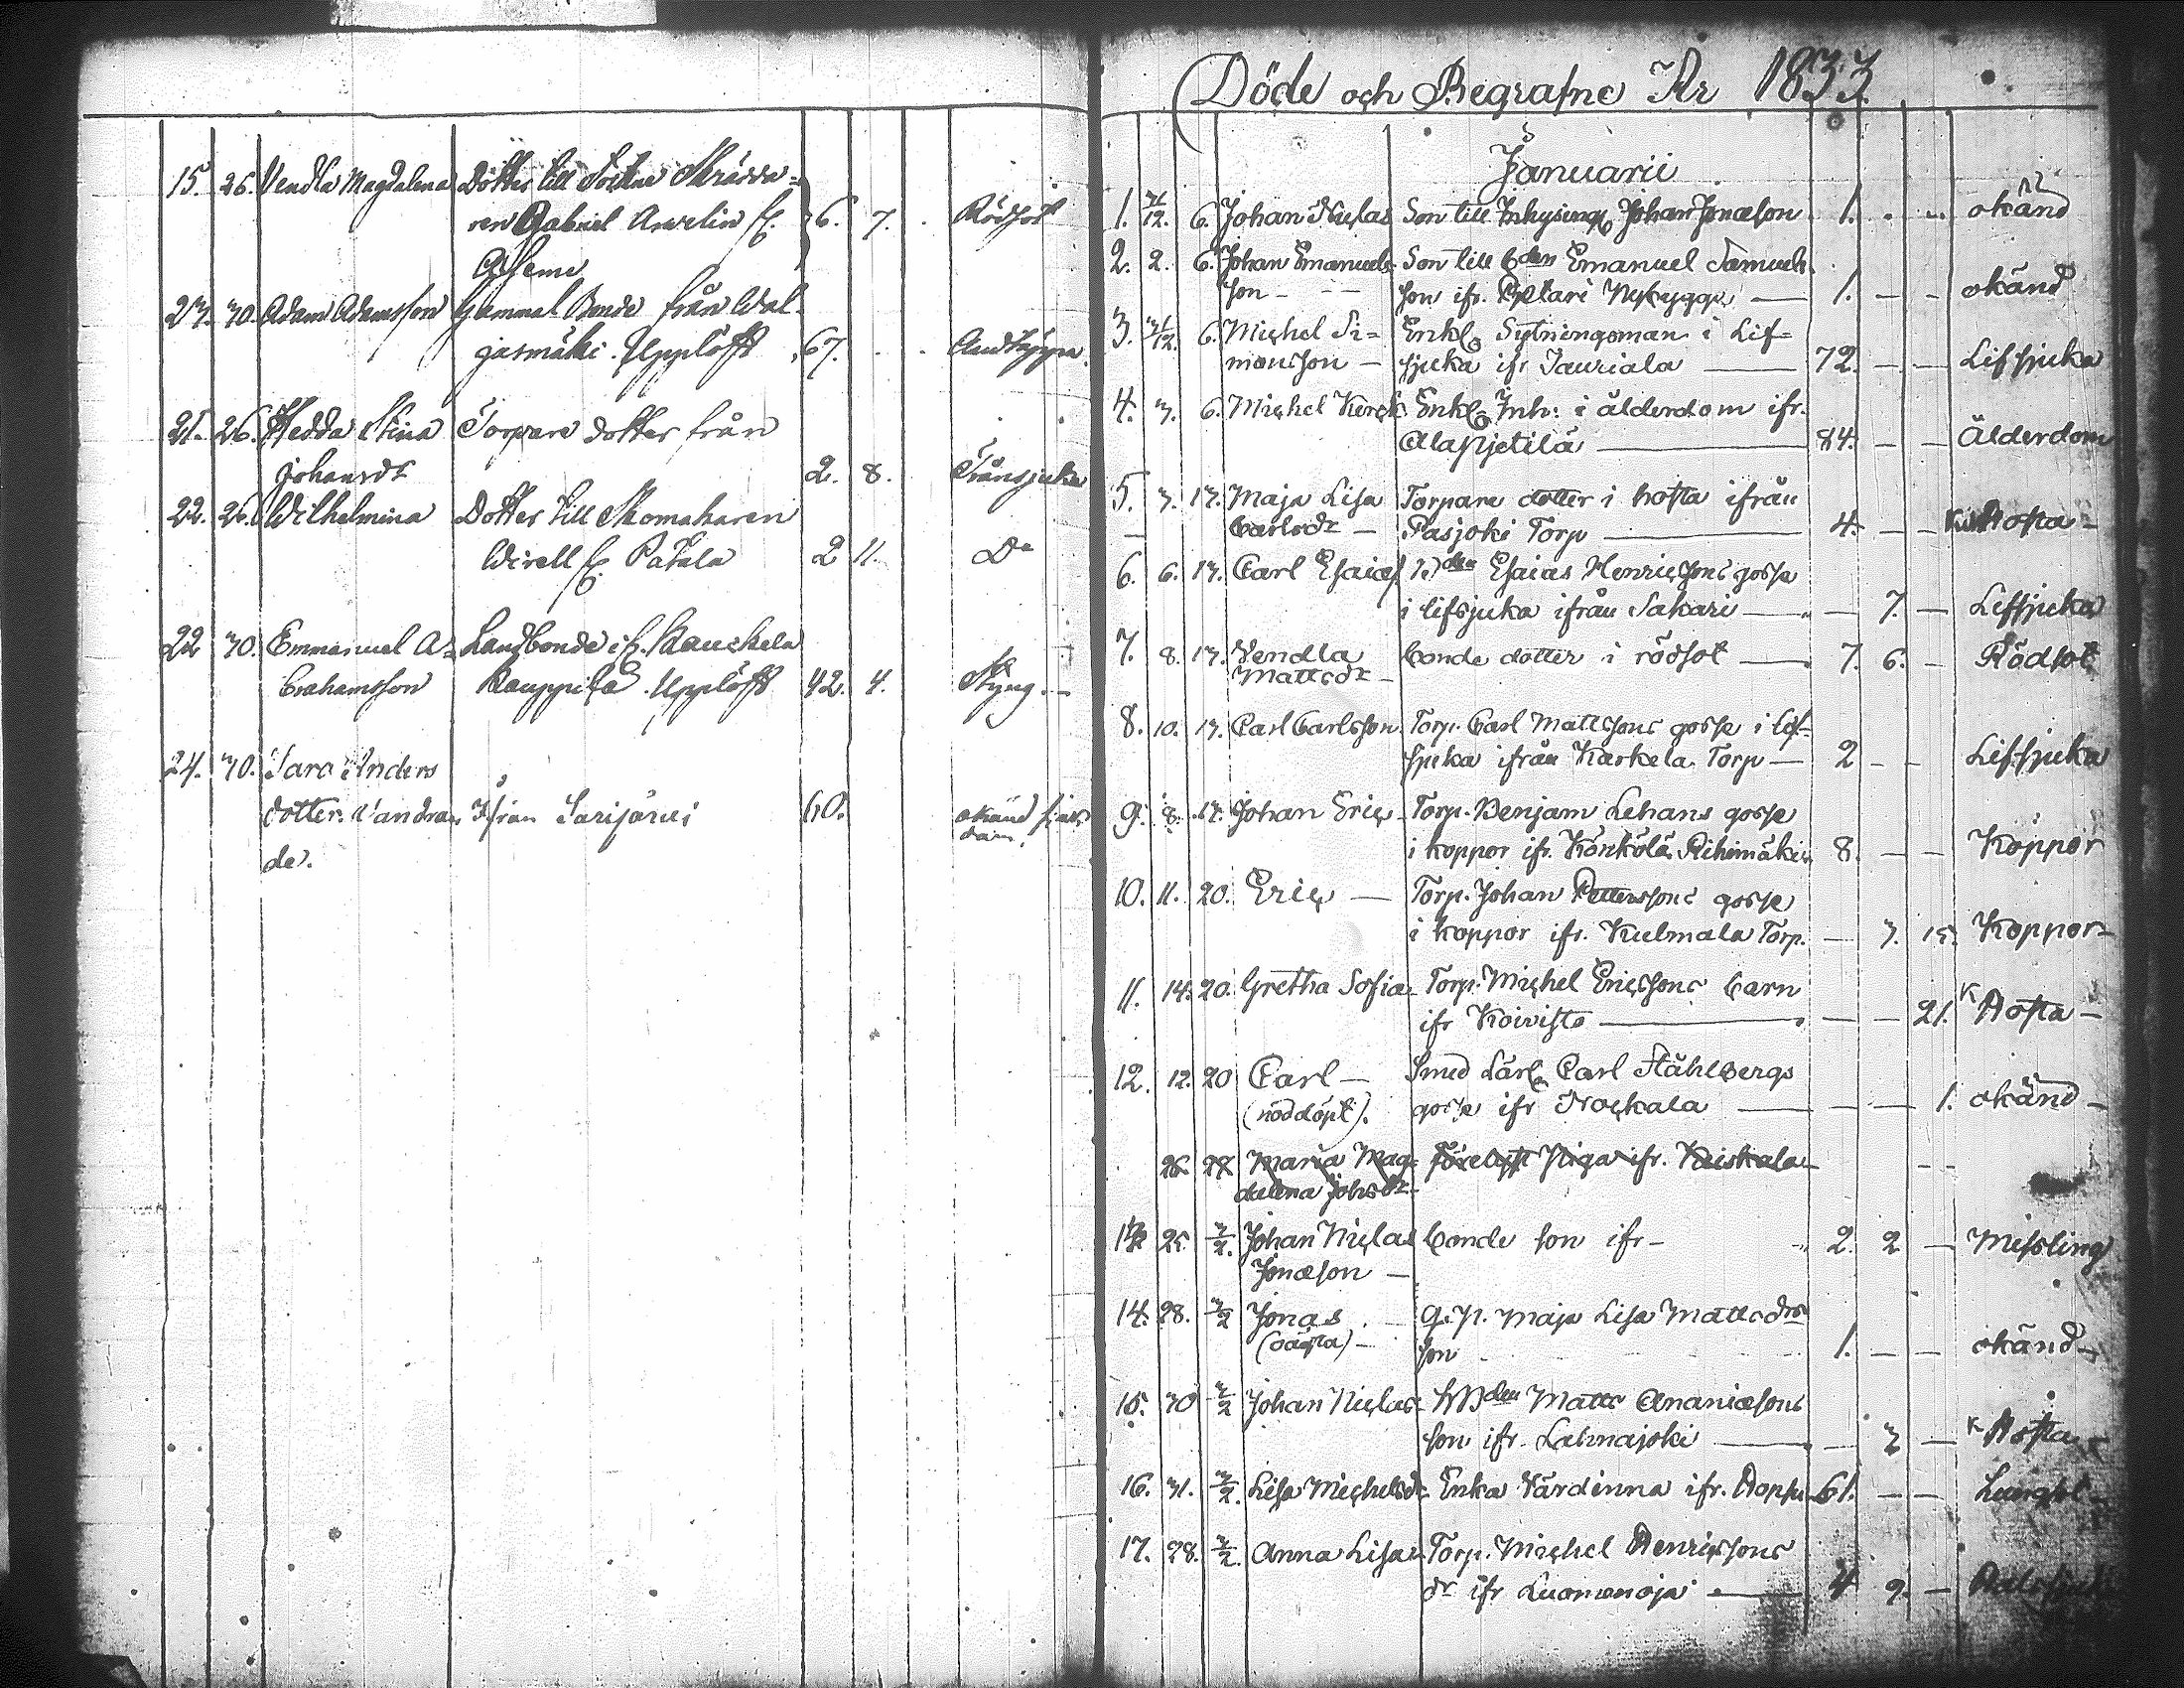 15. 26. Vendla Magdalena Dotter till Sockne Skrädda-
ren Gabriel Amelin fr. 6. 7. Rödsot
23. 30. Adam Adamsson Gammal Bonde från Wal-
jasmäki. Upplöfft 67. Andtäppa
21. 26. Hedda Stina Torpare dotter från
Johansdr 2. 8. Trånsjuka
22. 26. Wilhelmina Dotter till Skomakaren
Wirell fr. Patala 2 11. Do
22 30. Emmanuel A-
brahamsson Landbonde ifr. Kauckela
Kauppila. Upplöfft 42. 4. Styng
24. 30. Sara Anders
dotter. Vandran- Ifrån Sarijärvi 60. okänd sjuk-
dom
de.
Döde och Begrafne År 1833
Januarii
1. 31/12. 6. Johan Niclas Son till Inhysing Johan Jonæson 1. okänd
2. 2. 6. Johan Emanuels- Son till Bden Emanuel Samuels-
son son ifr. Pelari Nykygge 1. okänd
3. 31/12. 6. Michel Si- Enkl. Sytningsman i Lif-
monsson sjuka ifr Jauriala 72. Lifsjuka
4. 3. 6. Michel Kersk Enkl. Inh: i ålderdom ifr.
Alapjetilä 84. Ålderdom
5. 3. 13. Maja Lisa Torpare dotter i hosta ifrån
Carlsdr Pasjoki Torp 4. Hosta
6. 6. 13. Carl Esaiæs Bden Esaias Henricssons gosse
i lifsjuka ifrån Sakari 7. Lifsjuka
7. 8. 13. Vendla bonde dotter i rödsot 7. 6. Rödsot
Mattsdr
8. 10. 13. Carl Carlsson Torp. Carl Mattssons gosse i Lif-
sjuka ifrån Karkela Torp 2 Lifsjuka
9. 8. 13. Johan Eric Torp. Benjam Lehans gosse
i koppor ifr. Könkölä Rihimäki 8. Koppor
10. 11. 20. Eric Torp. Johan Petterssons gosse
i koppor ifr. Kulmala Torp. 3. 15. Koppor
11. 14. 20. Gretha Sofia Torp. Michel Ericssons barn
ifr Koivisto 21. K Hosta
12. 12. 20 Carl Smed Lärl. Carl Ståhlbergs
(nöddöpt). gosse ifr Nockala 1. okänd
26 28 Maria Mag- Förelöst Piga ifr.
dalena Johsdr
13 25 3/2. Johan Niclas bonde son ifr 2. 2 Missling
Jonæson
14. 28. 3/2 Jonas G. P. Maja Lisa Mattsdrs
(oägta) son 1. okänd
15. 30 3/2 Johan Niclas Matts Ananiæsons
son ifr. Lahnajoki 3 K Hosta
16. 31. 3/2. Lisa Michelsdr Enka Värdinna ifr. 61.
17. 28. 3/2. Anna Lisa Torp. Michel Henricssons
dr ifr Luomenoja 4 9.